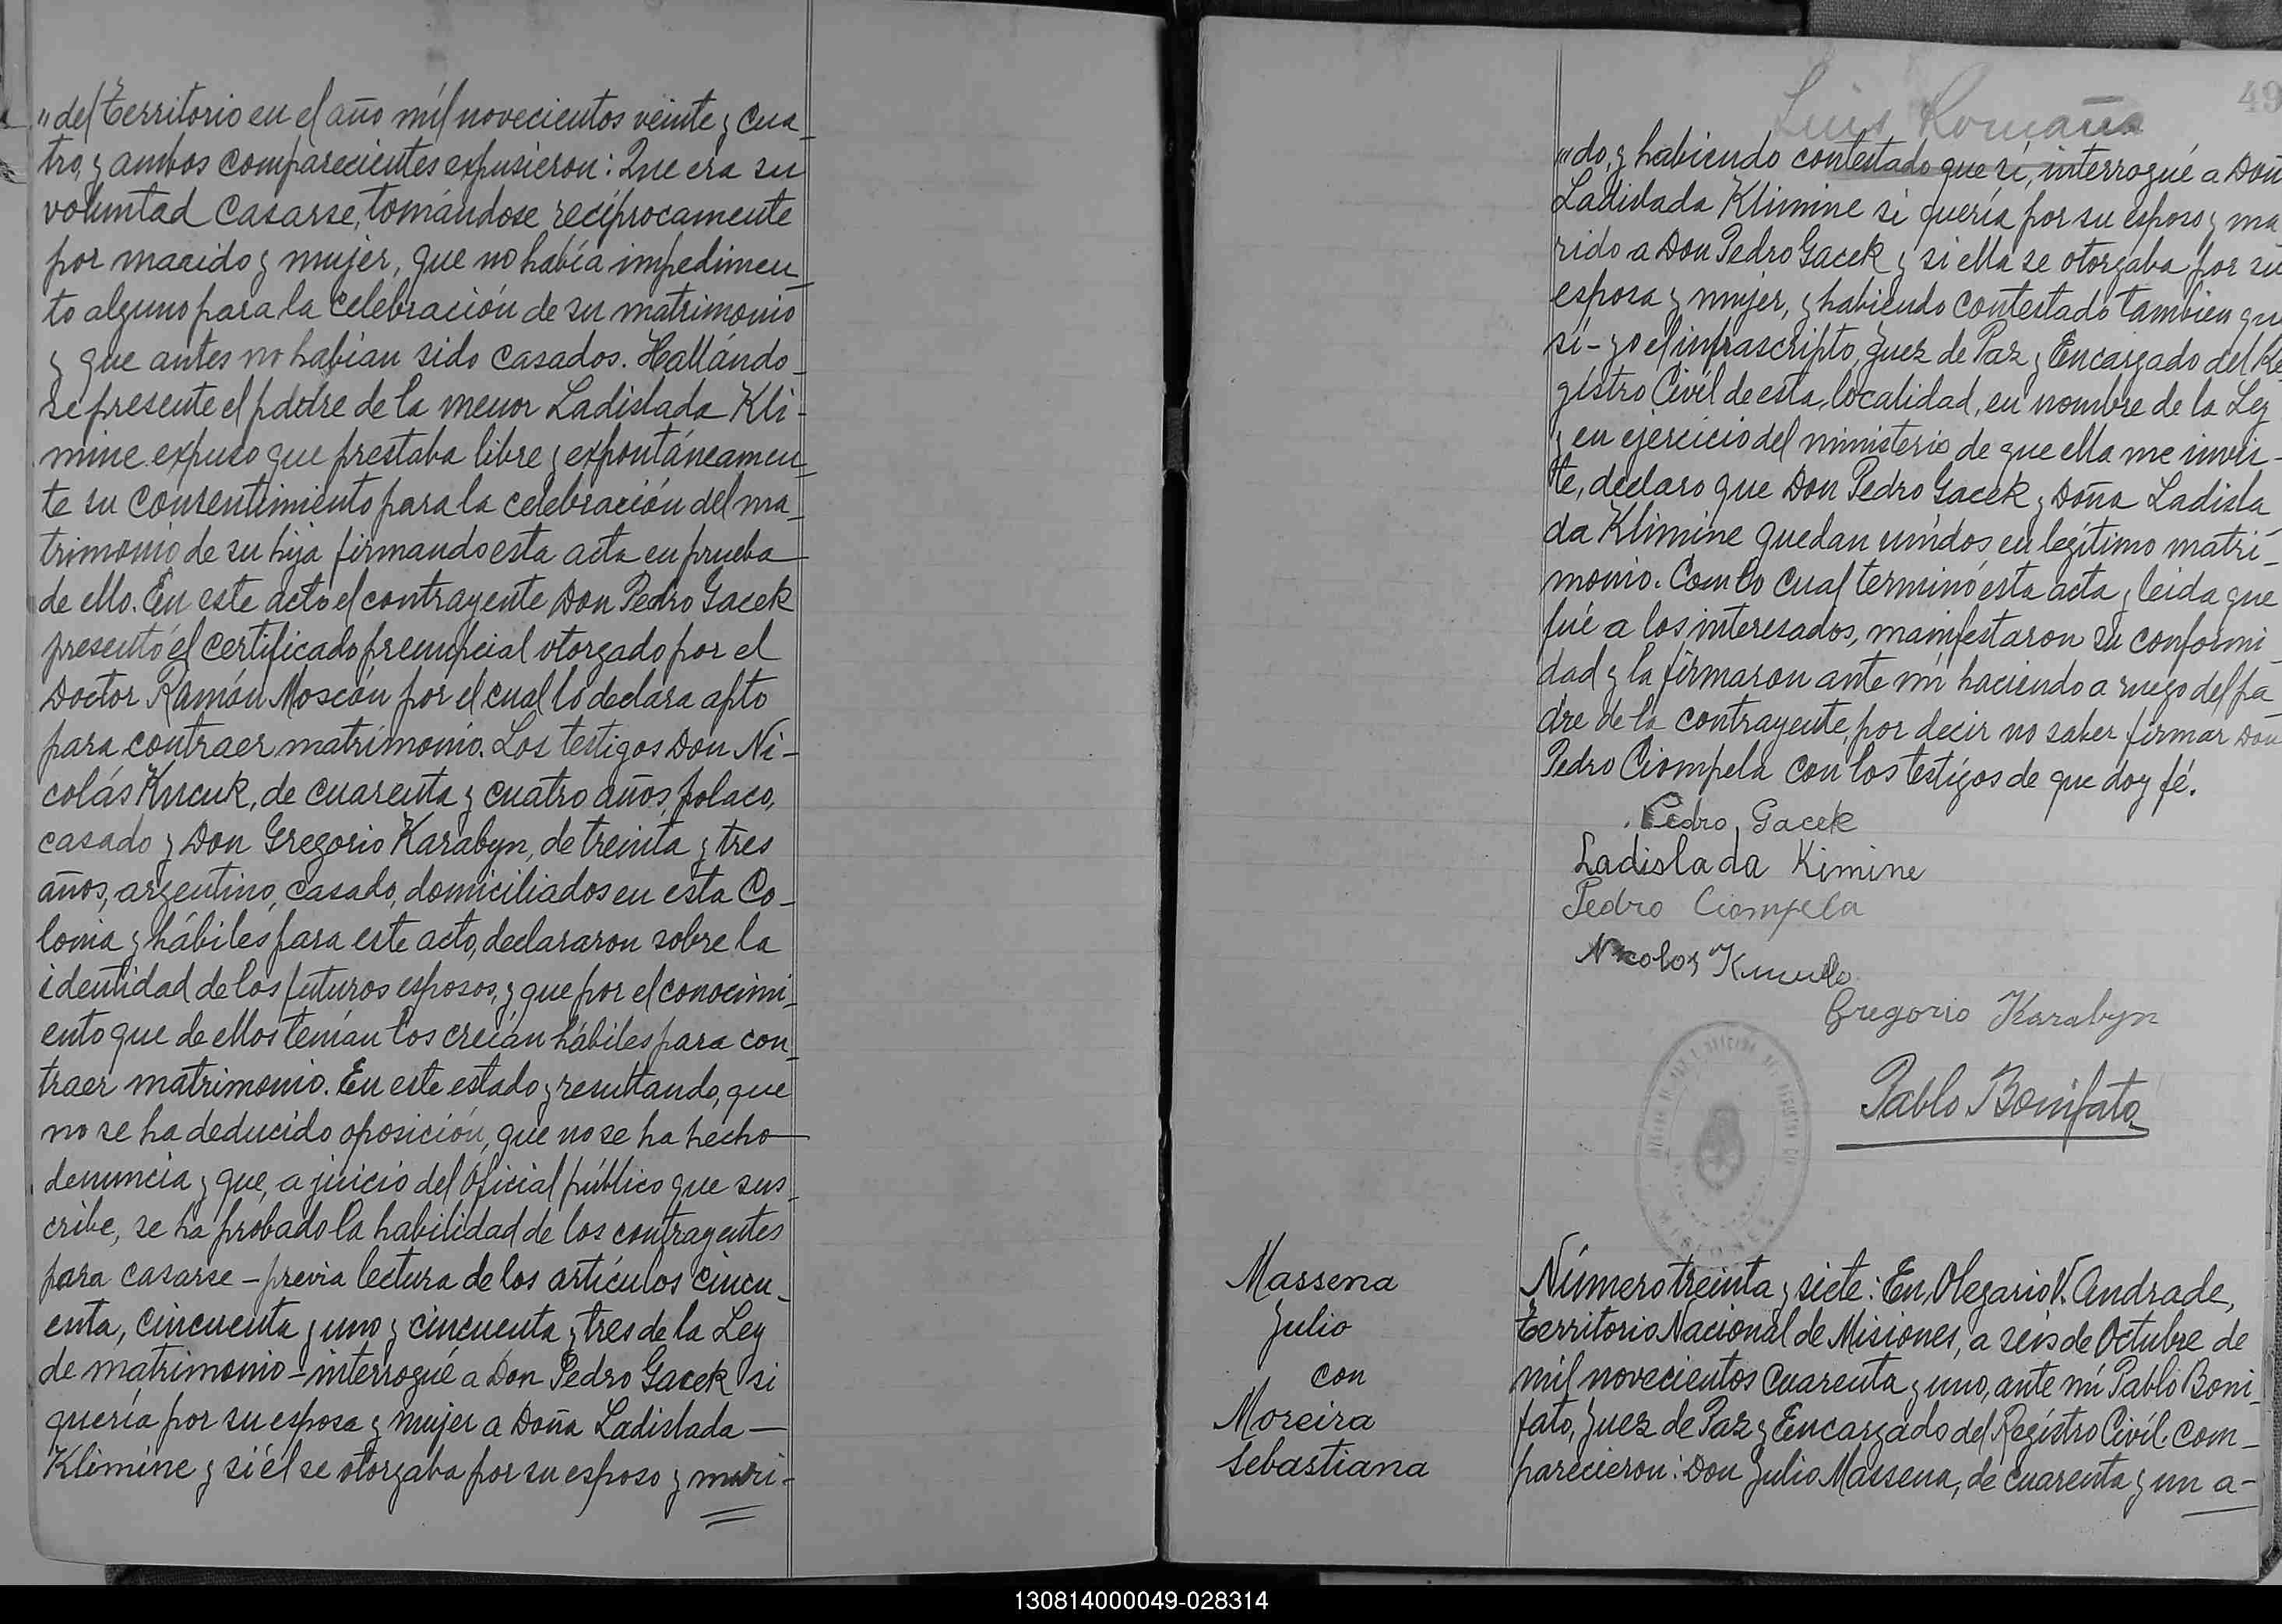 "del Territorio en el año mil novecientos veinte y cua_
tro, y ambos comparecientes expusieron: Que era su
voluntad casarse, tomándose recíprocamente
por marido y mujer, que no había impedimen_
to alguno para la celebración de su matrimonio
y que antes no habían sido casados. Hallándo_
se presente el padre de la menor Ladislada Kli-
mine expuso que prestaba libre y expontáneamen_
te su consentimiento para la celebración del ma_
trimonio de su hija firmando esta acta en prueba
de ello. En este acto el contrayente Don Pedro Gacek
presentó el certificado prenupcial otorgado por el
Doctor Ramón Moscón por el cual lo declara apto
para contraer matrimonio. Los testigos Don Ni-
colás Kucuk, de cuarenta y cuatro años, polaco,
casado y Don Gregorio Karabyn, de treinta y tres
años, argentino, casado, domiciliados en esta Co_
lonia y hábiles para este acto, declararon sobre la
identidad de los futuros esposos, y que por el conocimi_
ento que de ellos tenían los creían hábiles para con_
traer matrimonio. En este estado y resultando, que
no se ha deducido oposición, que no se ha hecho
denuncia y que, a juicio del Oficial público que sus_
cribe, se ha probado la habilidad de los contrayentes
para casarse - previa lectura de los artículos cincu_
enta, cincuenta y uno y cincuenta y tres de la Ley
de matrimonio - interrogué a Don Pedro Gacek si
quería por su esposa y mujer a Doña Ladislada —
Klimine y si él se otorgaba por su esposo y mari-
49
Luis Romaña
"do, y habiendo contestado que sí, interrogué a Doñ
Ladislada Klimine si quería por su esposo y ma_
rido a Don Pedro Gacek y si ella se otorgaba por su
esposa y mujer, y habiendo contestado tambien qu
sí - yo el infrascripto, Juez de Paz y Encargado del Re
gistro Civíl de esta localidad, en nombre de la Ley
y en ejercicio del ministerio de que ella me invis-
te, declaro que Don Pedro Gacek y Doña Ladisla_
da Klimine quedan unídos en legítimo matri_
monio. Con lo cual terminó esta acta y leida que
fué a los interesados, manifestaron su conformi_
dad y la firmaron ante mí haciendo a ruego del pa_
dre de la contrayente, por decir no saber firmar Don
Pedro Ciompela con los testigos de que doy fé.
Pedro Gacek
Ladislada Kimine
Pedro Ciompela
Nicolos
Gregorio Karabyn
Pablo Bonifato
MISIONES
Massena
Julio
con
Moreira
Sebastiana
Número treinta y siete: En Olegario V. Andrade,
Territorio Nacional de Misiones, a seis de Octubre de
mil novecientos cuarenta y uno, ante mí Pablo Boni_
fato, Juez de Paz y Encargado del Registro Civíl. Com_
parecieron: Don Julio Massena, de cuarenta y un a-
130814000049-028314